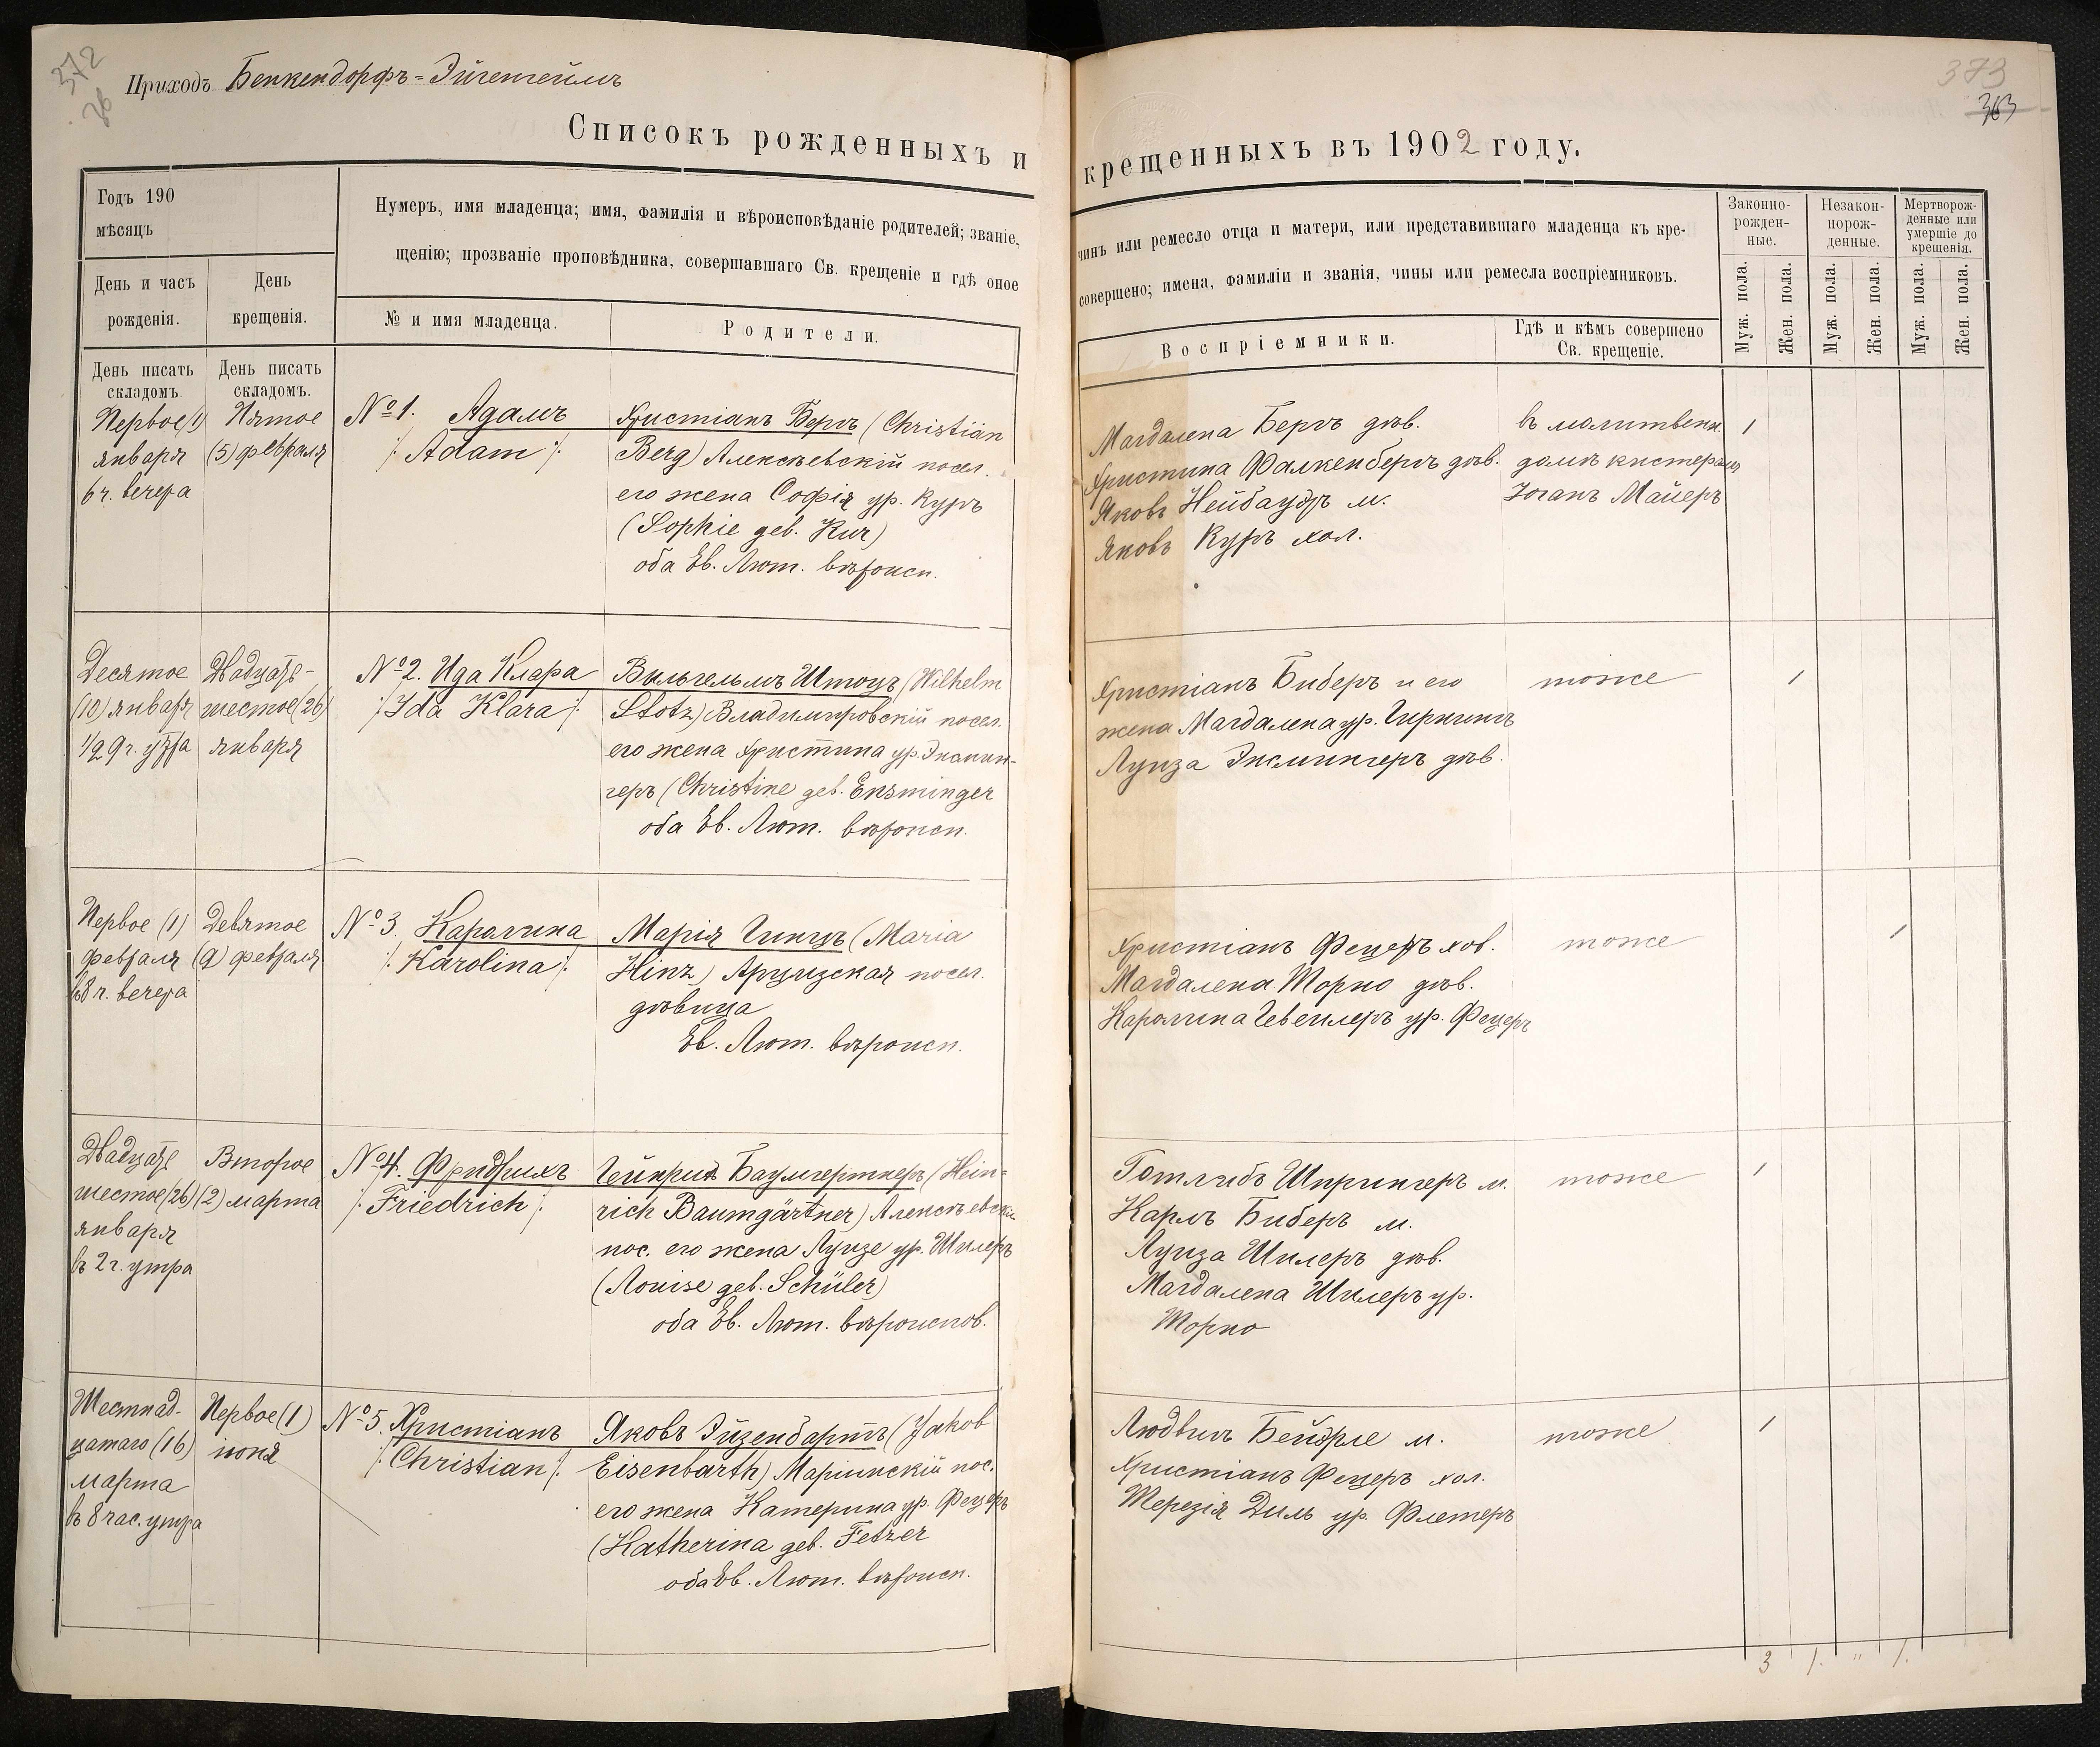 372
36
Приходъ Бенкендорфъ=Эйгенгеймъ
Списокъ рожденныхъ и
Годъ 190
мѣсяцъ
Нумеръ, имя младенца; имя, фамилія и вѣроисповѣданіе родителей; званіе,
щенію; прозваніе проповѣдника, совершавшаго Св. крещеніе и гдѣ оное
День и часъ
рожденія.
День
крещенія.
№ и имя младенца.
Родители.
День писать
складомъ.
День писать
складомъ.
Первое (1)
января
6 ч. вечера
Пятое
(5) февраля
№ 1. Адамъ
/: Adam :/
Христіанъ Бергъ (Christian
Berg) Алексѣевскій посел.
его жена Софія ур. Куръ
(Sophie geb. Kur)
оба Ев. Лют. вѣроисп.
Десятое
(10) января
1/2 9 ч. утра
Двадцать-
шестое (26)
января
№ 2. Ида Клара
/: Ida Klara :/
Вильгельмъ Штоцъ (Wilhelm
Stotz) Владимировскій посел.
его жена Христина ур. Энсмин-
геръ (Christine geb. Ensminger
оба Ев. Лют. вѣроисп.
Первое (1)
февраля
в 8 ч. вечера
Девятое
(9) февраля
№ 3. Каролина
/: Karolina :/
Марія Гинцъ (Maria
Hinz) Арцызская посел.
дѣвица
Ев. Лют. вѣроисп.
Двадцать
шестое (26)
января
в 2 ч. утра
Второе
(2) марта
№ 4. Фридрихъ
/: Friedrich :/
Гейнрих Баумгертнеръ (Hein=
rich Baumgärtner) Алексѣевскій
пос. его жена Луизе ур. Шилеръ
(Louise geb. Schüler)
оба Ев. Лют. вѣроиспов.
Шестнад-
цатаго (16)
марта
в 8 час. утра
Первое (1)
июня
№ 5. Христіанъ
/: Christian :/
Яковъ Эйзенбартъ (Jakob
Eisenbarth) Маріинскій пос.
его жена Катерина ур. Фецеръ
(Katherina geb. Fetzer
оба Ев. Лют. вѣроисп.
373
363
крещенныхъ въ 1902 году.
чинъ или ремесло отца и матери, или представившаго младенца къ кре-
совершено; имена, фамиліи и званія, чины или ремесла воспріемниковъ.
Воспріемники.
Гдѣ и кѣмъ совершено
Св. крещеніе.
Законно-
рожден-
ные.
Незакон-
норож-
денные.
Мертворож-
денные или
умершіе до
крещенія.
Муж. пола.
Жен. пола.
Муж. пола.
Жен. пола.
Муж. пола.
Жен. пола.
Магдалена Бергъ дѣв.
Христина Фалкенбергъ дѣв.
Яковъ Нейбауэръ м.
Яковъ Куръ хол.
въ молитвенн.
домѣ кистеромъ
Іоганъ Майеръ
1
Христіанъ Биберъ и его
жена Магдалена ур. Гирнингъ
Луиза Энсмингеръ дѣв.
тоже
1
Христіанъ Фецеръ хов.
Магдалена Торно дѣв.
Каролина Гевейлеръ ур. Фецеръ
тоже
1
Готлибъ Шпрингеръ м.
Карлъ Биберъ м.
Луиза Шилеръ дѣв.
Магдалена Шилеръ ур.
Торно
тоже
1
Людвигъ Бейэрле м.
Христіанъ Фецеръ хол.
Терезія Диль ур. Флетеръ
тоже
1
3 1. " 1.